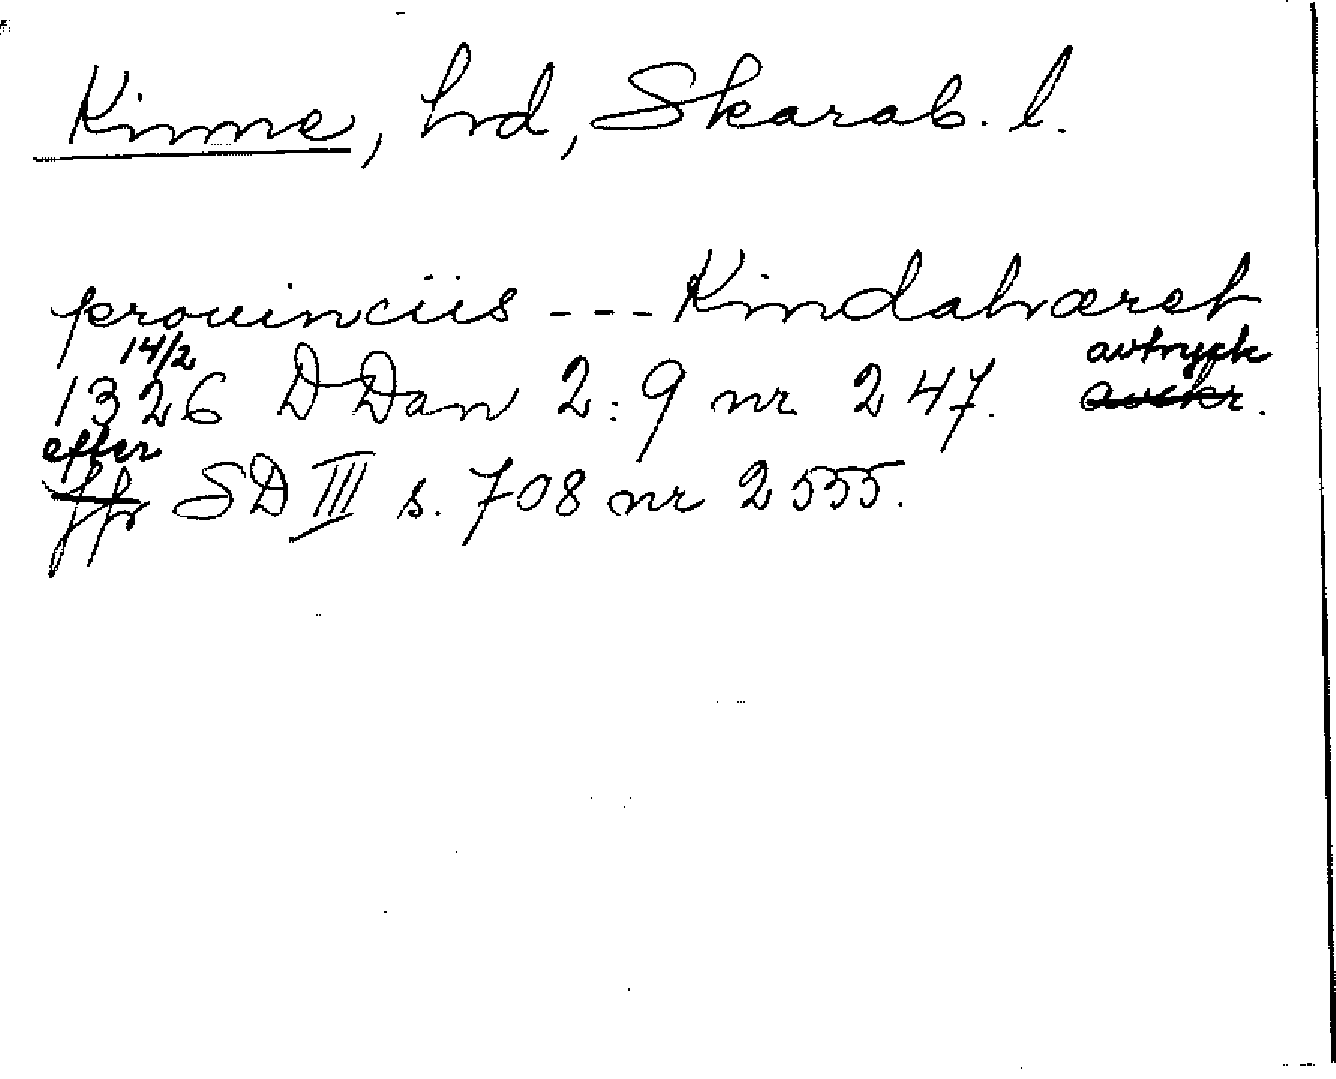 Kinne, hd, Skarab. l.
prouinciis --- Kindahæret
14/2 avtryck
1326 DDan 2:9 nr 247. avskr.
efter
jfr SD III s. 708 nr 2555.